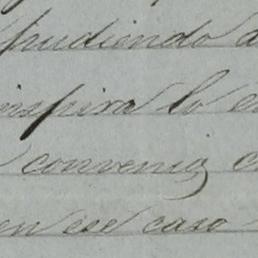 pudiendo
inspira lo
convenia
en ese caso